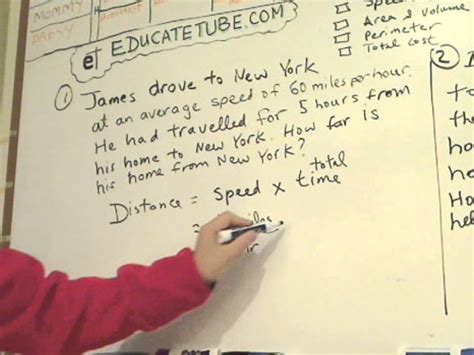 MOMMY
DADDY
et EDUCATETUBE.COM
Area & Volume
Perimeter
Total cost
① James drove to New York
at an average speed of 60 miles-per-hour.
He had travelled for 5 hours from
his home to New York. How far is
his home from New York?
Distance = speed x total time
②